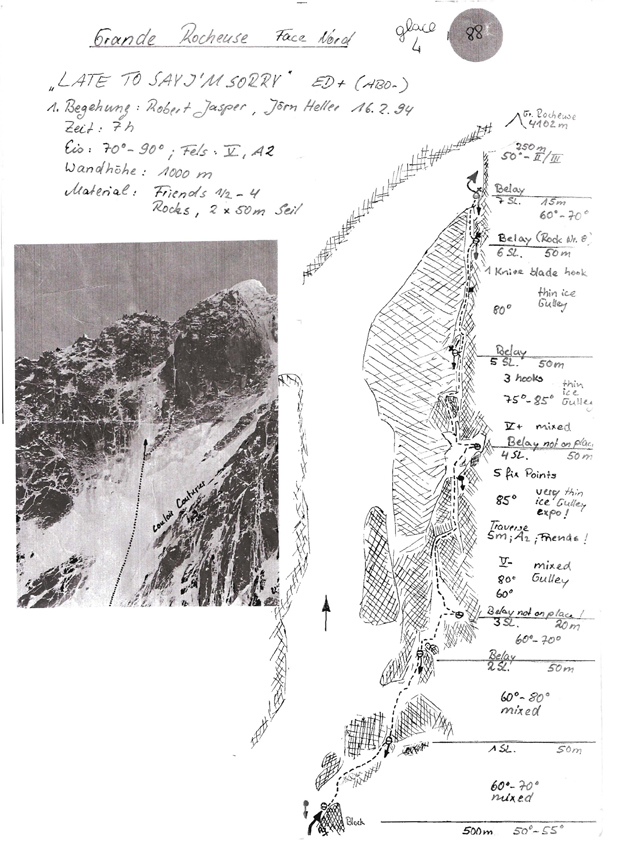 Grande Rocheuse Face Nord
glace 4
88
"LATE TO SAY I'M SORRY" ED+ (ABO-)
1. Begehung: Robert Jasper, Jörn Heller 16.2.94
Zeit: 7h
Eis: 70°-90°; Fels: V, A2
Wandhöhe: 1000 m
Material: Friends 1/2 - 4
Rocks, 2 x 50m Seil
Gr. Rocheuse
4102m
250m
50°-II/III
Belay
7 SL. 15m
60°-70°
Belay (Rock Nr. 8)
6 SL. 50m
1 Knive blade hook
thin ice
Gulley
80°
Belay
5 SL. 50m
3 hooks
thin
ice
75°-85° Gulley
V+ mixed
Belay not on place
4 SL. 50m
5 fix Points
85° very thin
ice Gulley
expo!
Traverse
5m; A2; Friends!
V- mixed
80° Gulley
60°
Belay not on place!
3 SL. 20m
60°-70°
Belay
2 SL. 50m
60°-80°
mixed
1 SL. 50m
60°-70°
mixed
Block
500m 50°-55°
Couloir Couturier